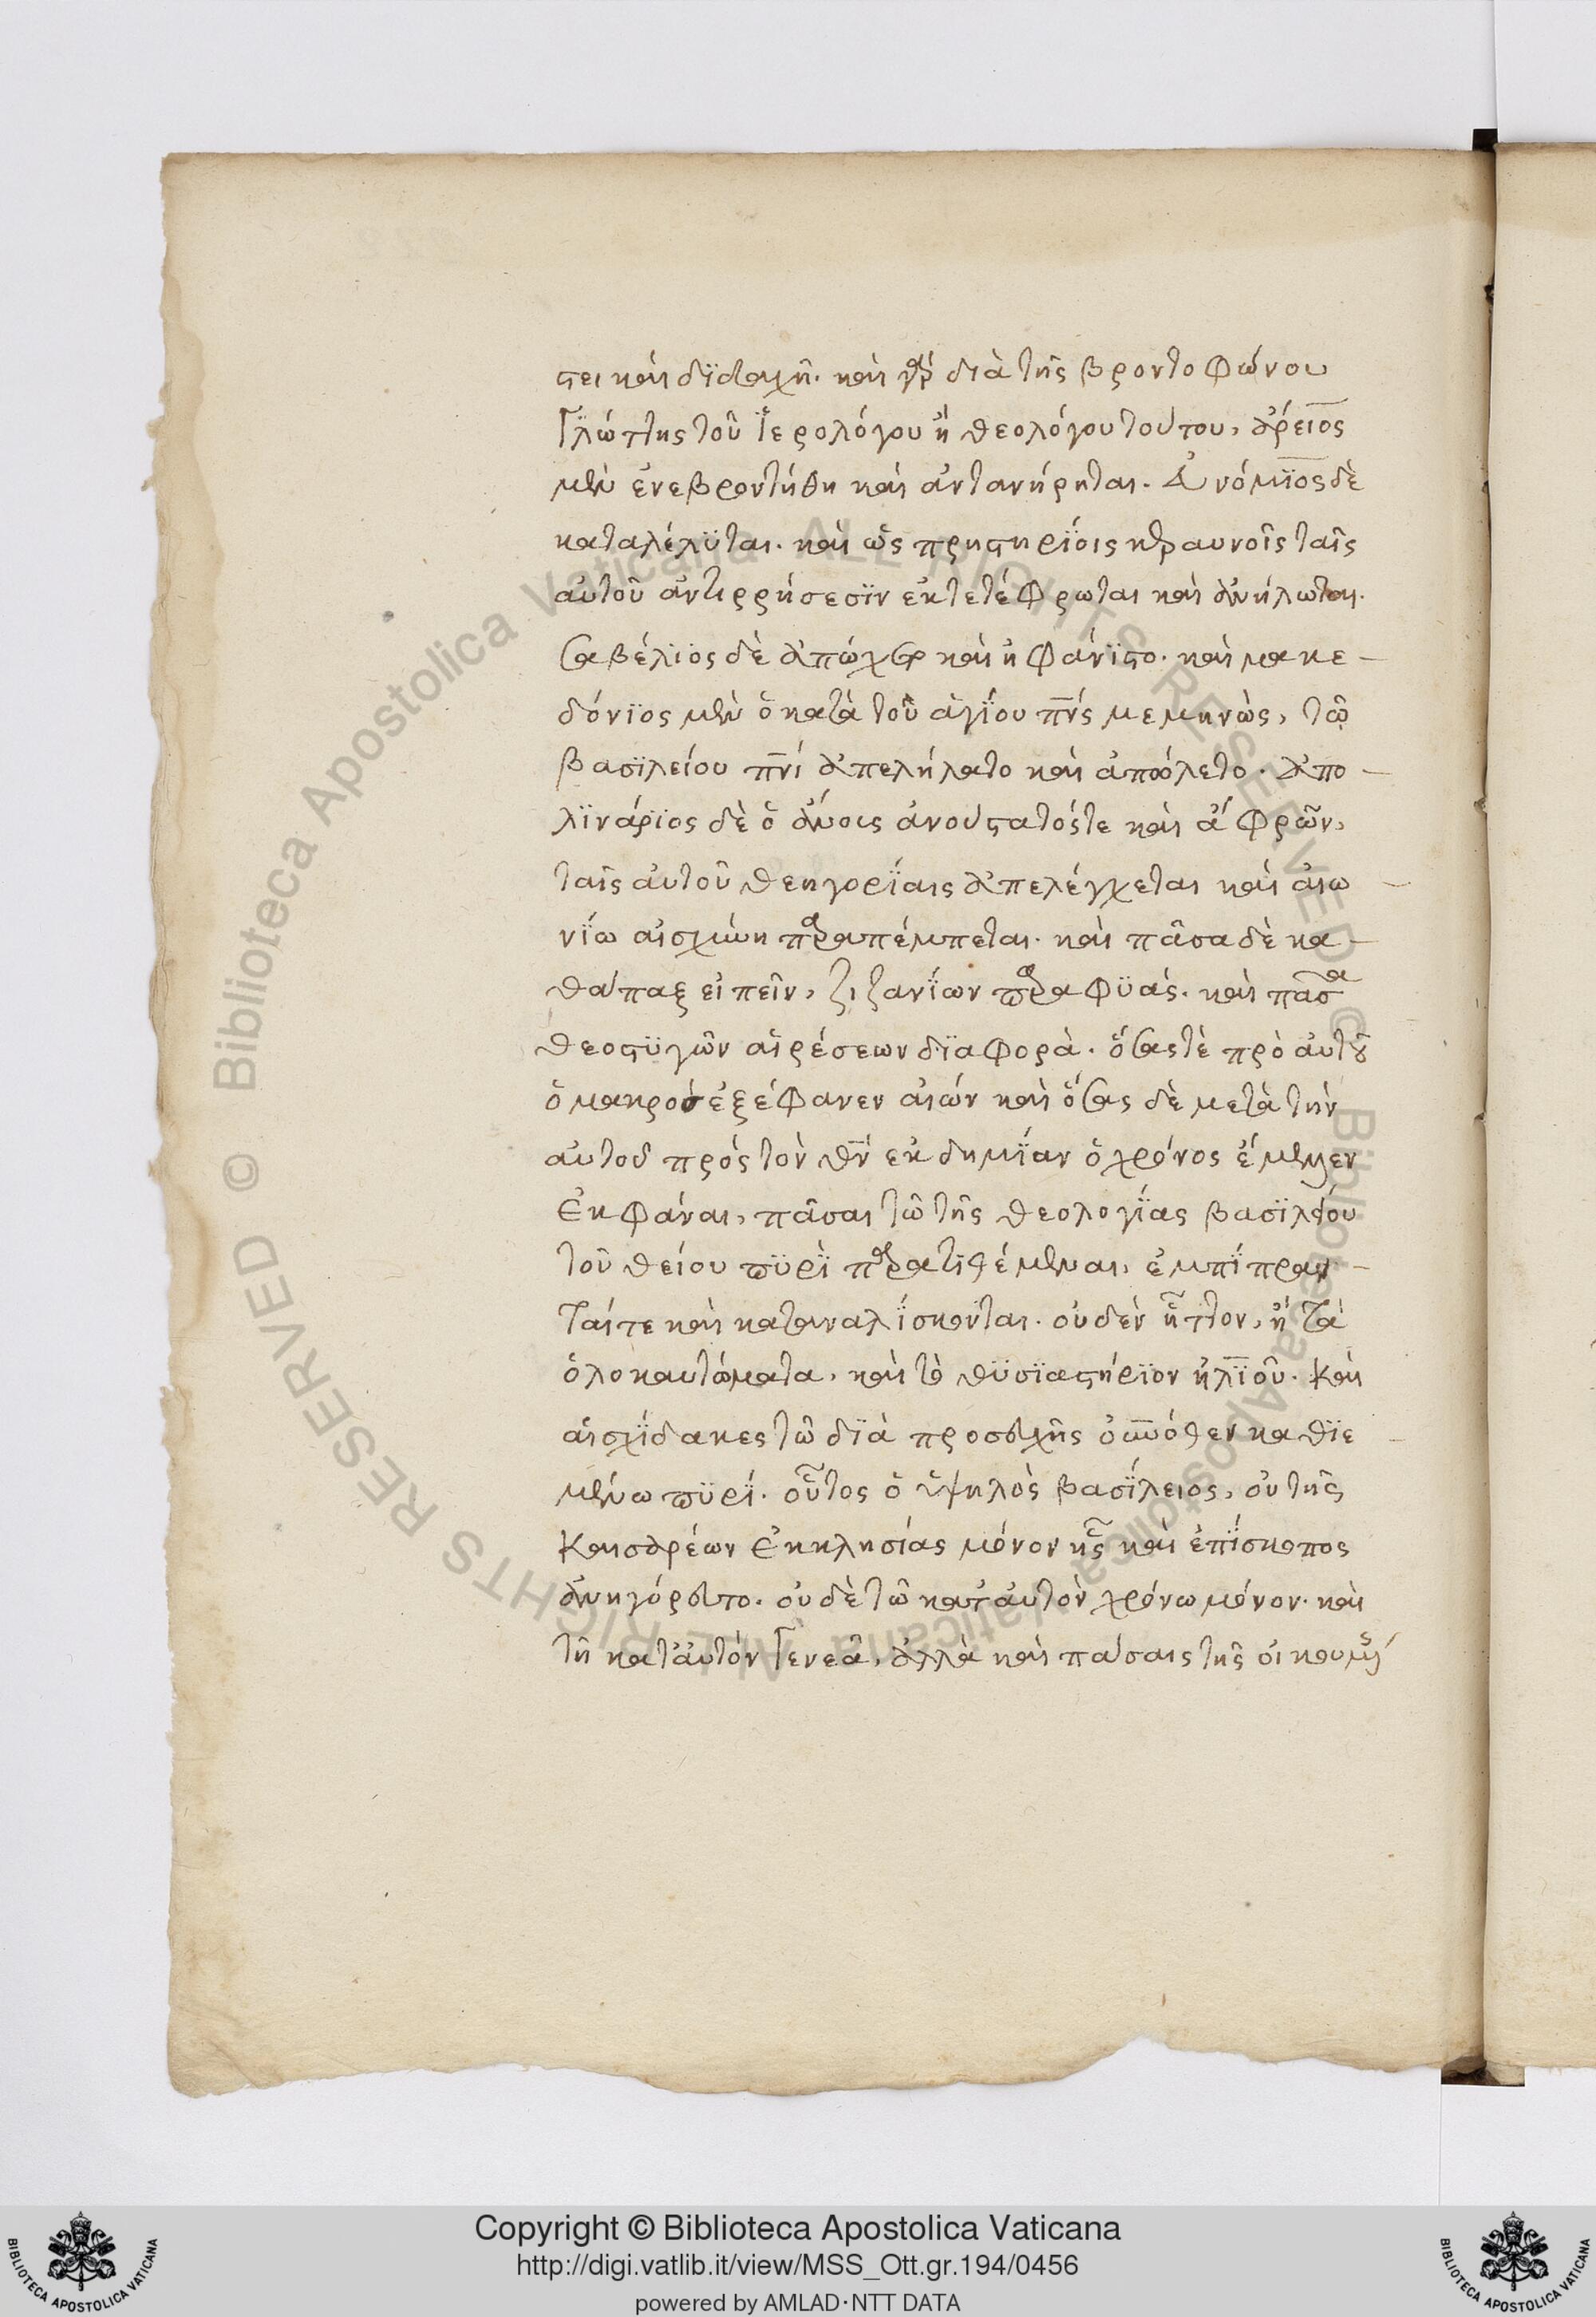 στει καὶ διδαχῆ. καὶ γὰρ διὰ τῆς βροντοφώνου
γλώττης τοῦ ἱερολόγου ἢ θεολόγου τούτου, ἄρειος
μὲν ἐνεβροντήθη καὶ ἀντανήρηται. Ἀνόμιος δὲ
καταλέλϋται. καὶ ὡς πρηστηρίοις κεραυνοῖς ταῖς
αὐτοῦ ἀντιρρήσεσϊν ἐκτετέφρωται καὶ ἀνήλωται.
Σαβέλϊος δὲ ἀπώχετο καὶ ἠφάνϊστο. καὶ μακε-
δόνϊος μὲν ὁ κατὰ τοῦ ἁγΐου πν̅ς μεμηνὼς, τῶ
βασϊλείου πν̅ι ἀπελήλατο καὶ ἀπόλετο. ἀπο-
λϊνάρϊος δὲ ὁ ἄνοις ἀνούστατός τε καὶ ἄφρων,
ταῖς αὐτοῦ θεηγορΐαις ἀπελέγχεται καὶ αἰω-
νΐω αἰσχύνη παραπέμπεται. καὶ πᾶσα δὲ κα-
θάπαξ εἰπεῖν, ζιζανΐων παραφϋάς. καὶ πᾶσα
θεοστϋγῶν αἱρέσεων δϊαφορὰ. ὅσας τὲ πρὸ αὐτοῦ
ὁ μακρὸς ἐξέφανεν αἰών καὶ ὅσας δὲ μετὰ τὴν
αὐτοῦ πρὸς τὸν θν̅ ἐκδημΐαν ὁ χρόνος ἔμελλεν
ἐκφάναι, πᾶσαι τῶ τῆς θεολογΐας βασϊλείου
τοῦ θείου πϋρϊ παρατιθέμεναι, ἐμπΐπραν-
ταί τε καὶ καταναλΐσκονται. οὐδὲν ἧττον, ἢ τὰ
ὁλοκαυτώματα, καὶ τὸ θϋσϊαστήρϊον ἠλϊοῦ. καὶ
αἱ σχΐδακες τῶ δϊὰ προσευχῆς οὐν̅όθεν καθϊε-
μένω πϋρΐ. οὗτος ὁ ὑψηλὸς βασΐλειος, οὐ τῆς
Καισαρέων ἐκκλησίας μόνον ἧς καὶ ἐπΐσκοπος
ἀνηγόρευτο. οὐδὲ τῶ κατ' αὐτὸν χρόνω μόνον. καὶ
τῆ κατ' αὐτὸν γενεᾶ, ἀλλὰ καὶ πάσαις τῆς οἰκουμένης
Copyright © Biblioteca Apostolica Vaticana
http://digi.vatlib.it/view/MSS_Ott.gr.194/0456
powered by AMLAD·NTT DATA
BIBLIOTECA APOSTOLICA VATICANA
BIBLIOTECA APOSTOLICA VATICANA
© Biblioteca Apostolica Vaticana ALL RIGHTS RESERVED © Biblioteca Apostolica Vaticana ALL RIGHTS RESERVED